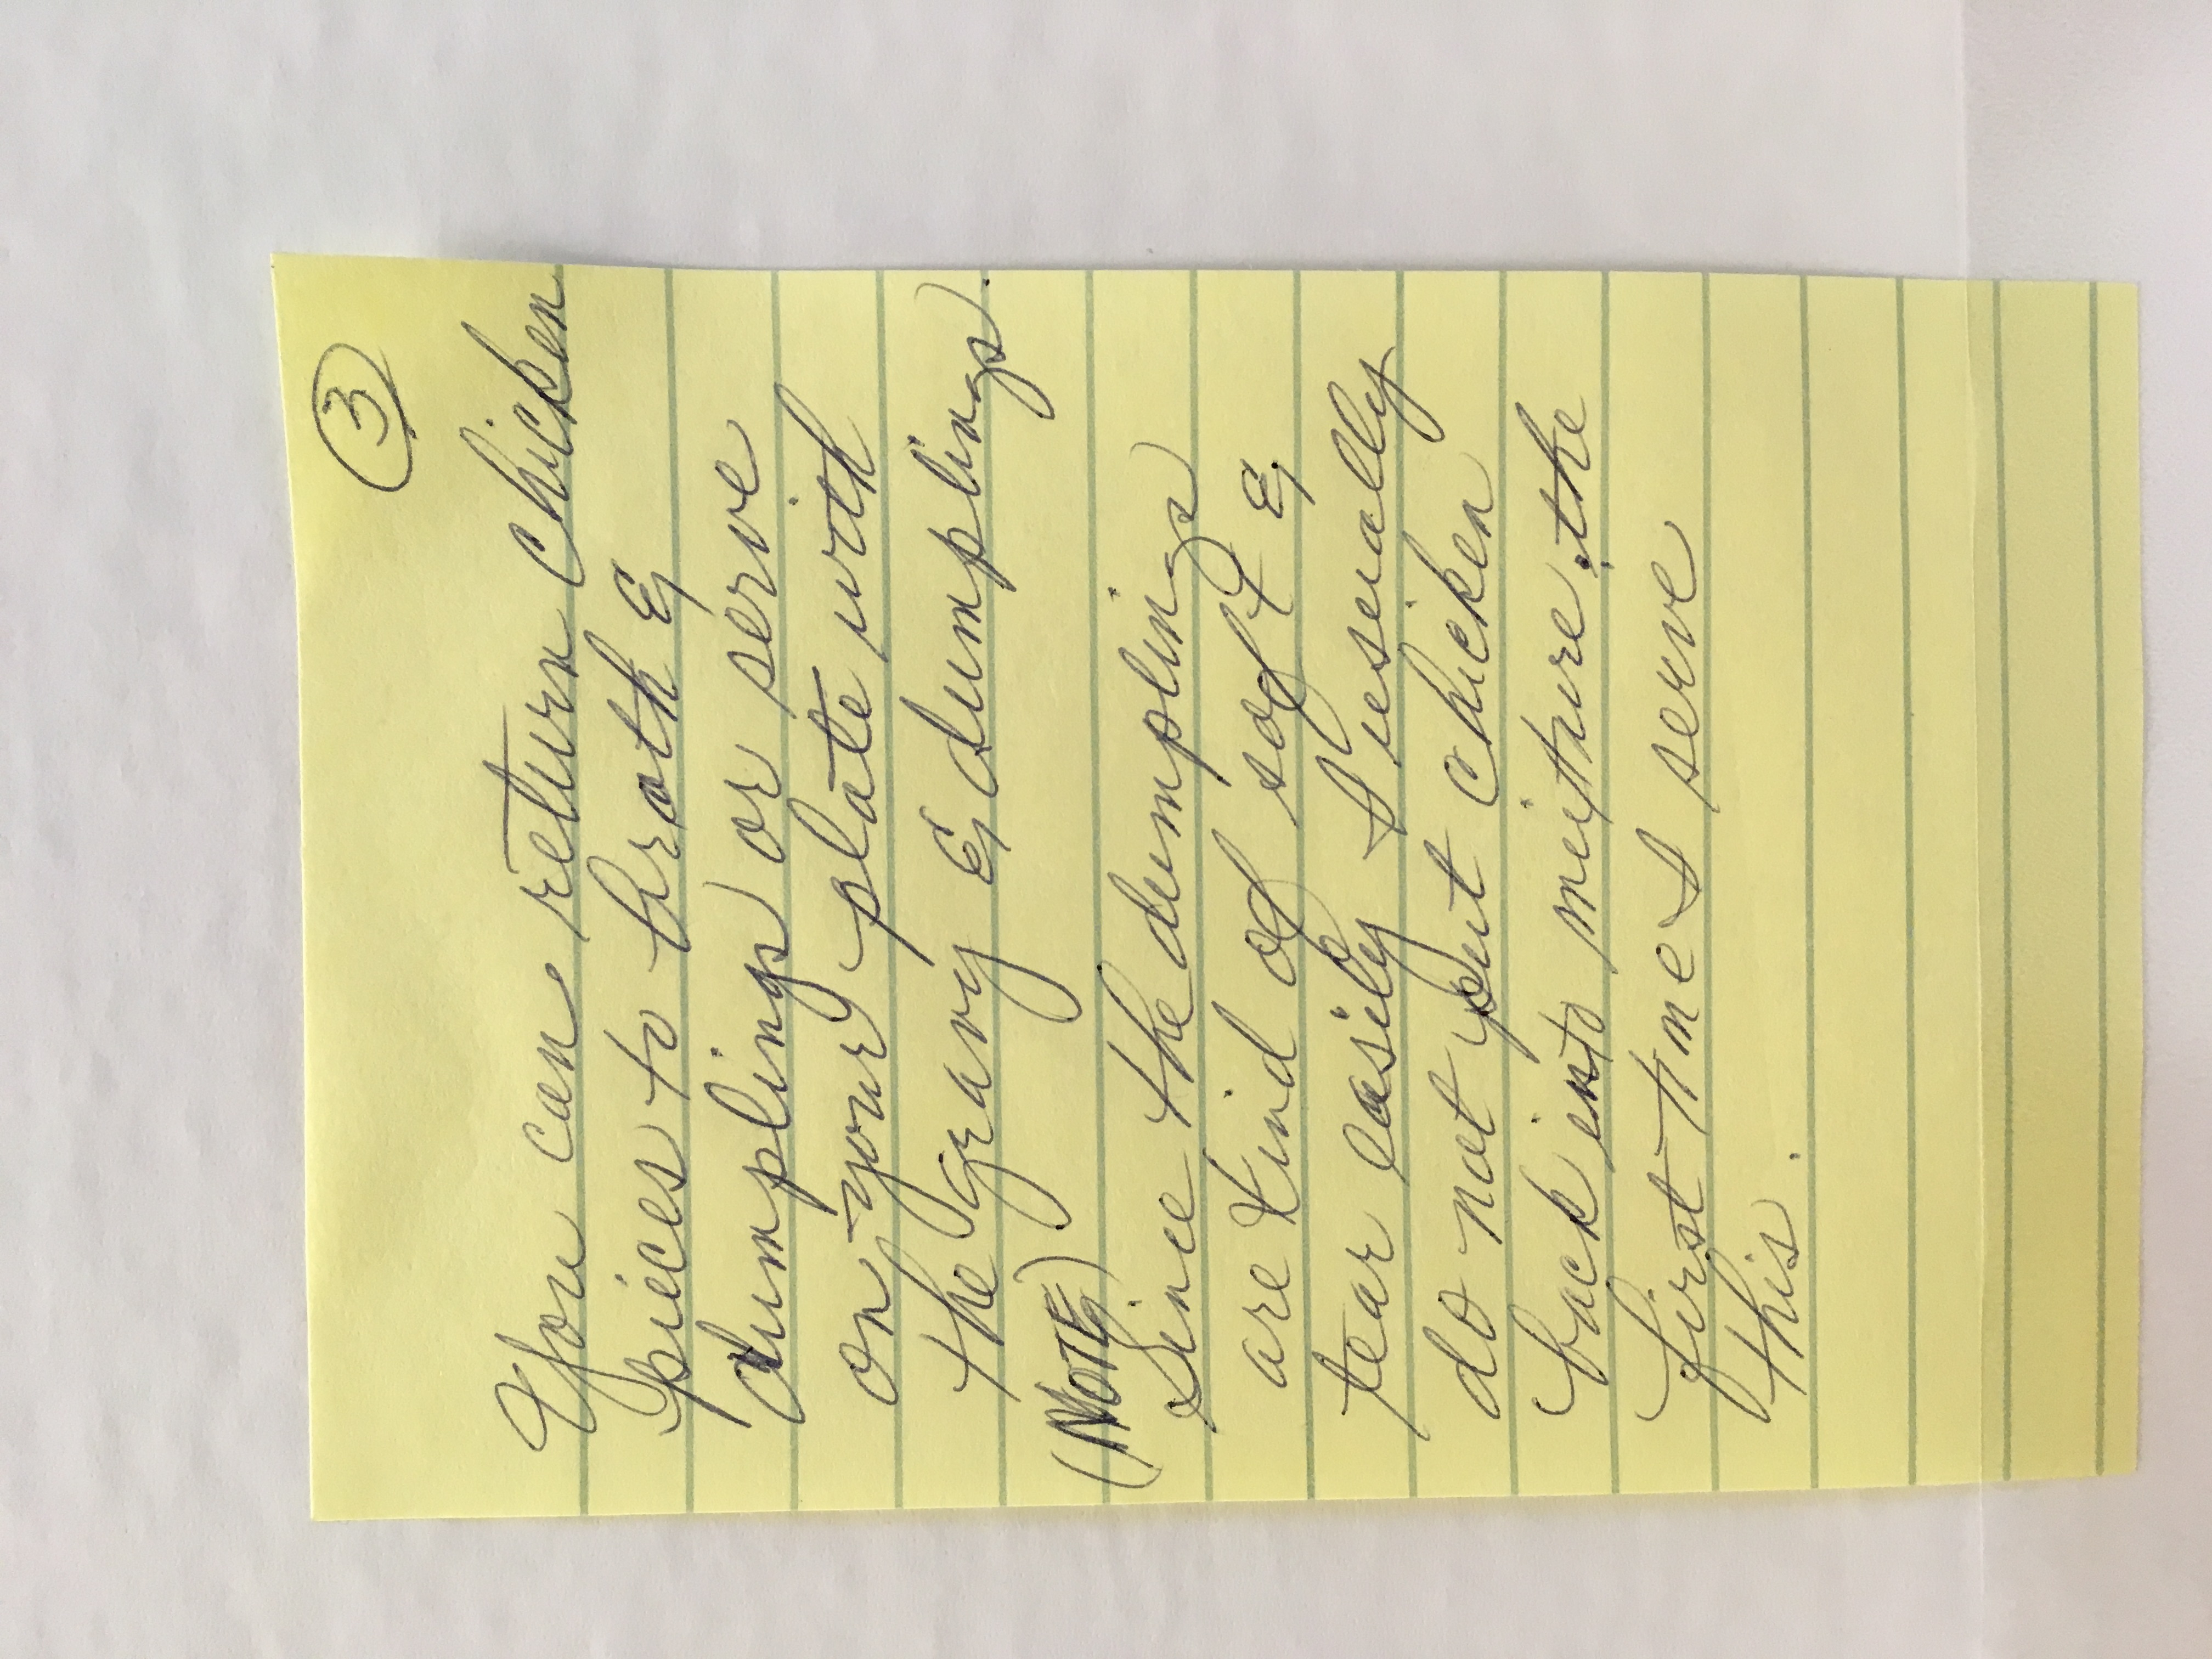 3
You can return chicken
pieces to broth &
dumplings or serve
on your plate with
the gravy & dumplings.
(NOTE)
Since the dumplings
are kind of soft &
tear easily I usually
do not put chicken
back into mixture the
first time I serve
this.